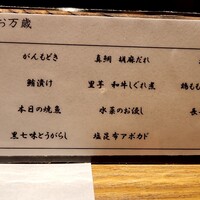 お万歳
がんもどき
真鯛 胡麻だれ
鮪漬け
里芋 和牛しぐれ煮
鶏もも
本日の焼魚
水菜のお浸し
長
黒七味とうがらし
塩昆布アボカド